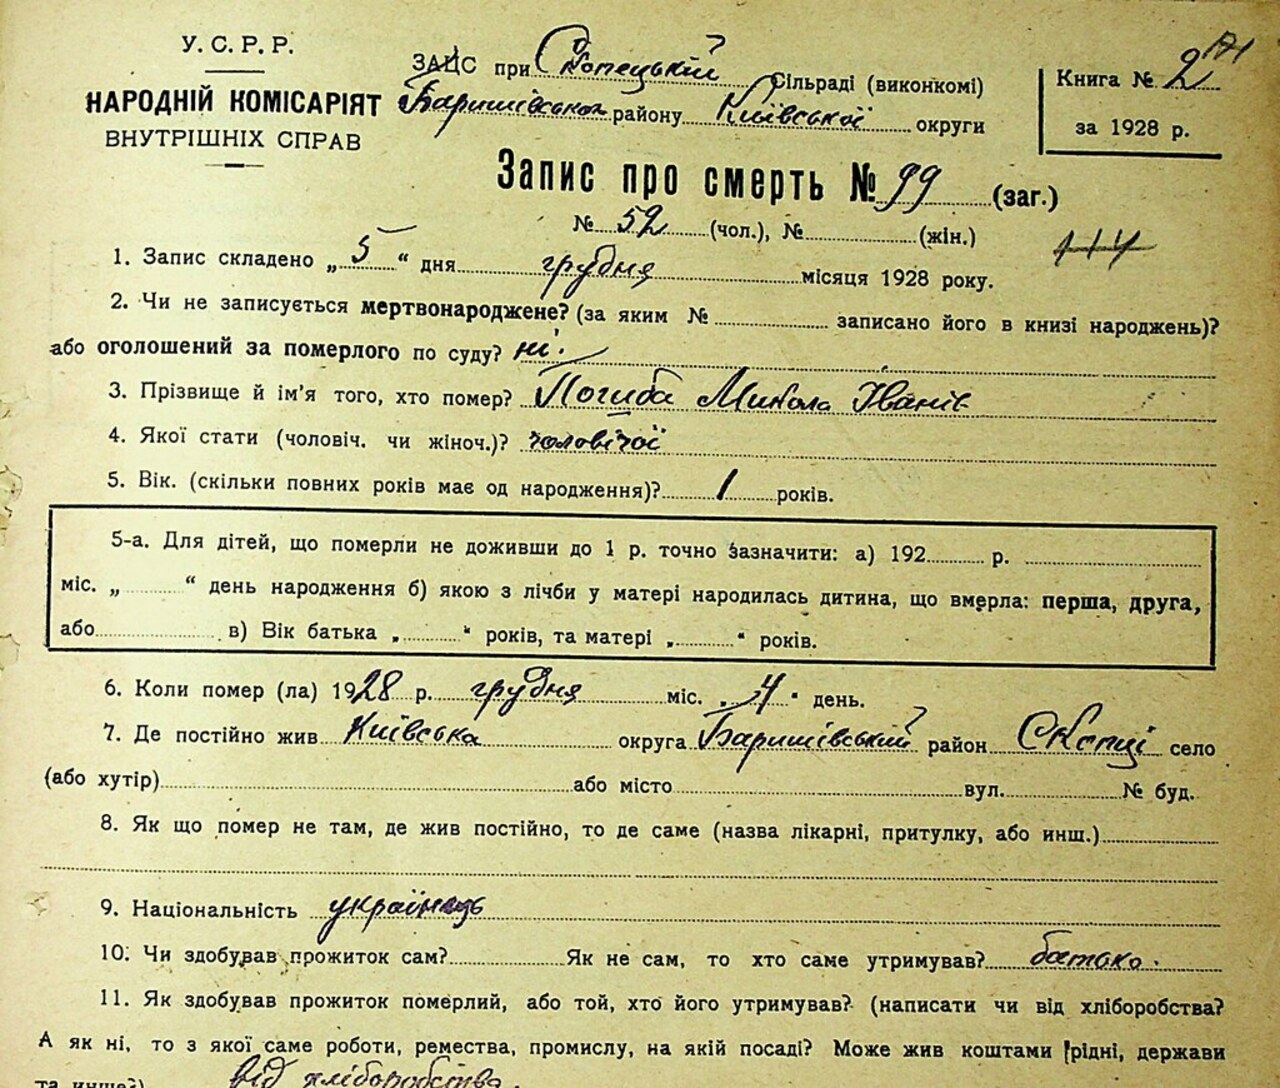 У. С. Р. Р.
НАРОДНІЙ КОМІСАРІЯТ
ВНУТРІШНІХ СПРАВ
ЗАЦС при Скопецькій Сільраді (виконкомі)
Баришівського району Київської округи
Книга № 2
за 1928 р.
Запис про смерть № 99 (заг.)
№ 52 (чол.), № (жін.)
114
1. Запис складено „ 5 “ дня грудня місяця 1928 року.
2. Чи не записується мертвонароджене? (за яким № записано його в книзі народжень)?
або оголошений за померлого по суду? ні.
3. Прізвище й ім'я того, хто помер? Погиба Микола Іванів
4. Якої стати (чоловіч. чи жіноч.)? чоловічої
5. Вік. (скільки повних років має од народження)? 1 років.
5-а. Для дітей, що померли не доживши до 1 р. точно зазначити: а) 192 р.
міс. „ “ день народження б) якою з лічби у матері народилась дитина, що вмерла: перша, друга,
або в) Вік батька „ “ років, та матері „ “ років.
6. Коли помер (ла) 1928 р. грудня міс. „ 4 “ день.
7. Де постійно жив Київська округа Баришівський район Скопці село
(або хутір) або місто вул. № буд.
8. Як що помер не там, де жив постійно, то де саме (назва лікарні, притулку, або инш.)
9. Національність українець
10. Чи здобував прожиток сам? Як не сам, то хто саме утримував? батько.
11. Як здобував прожиток померлий, або той, хто його утримував? (написати чи від хліборобства?
А як ні, то з якої саме роботи, ремества, промислу, на якій посаді? Може жив коштами рідні, держави
та инше?) від хліборобства.